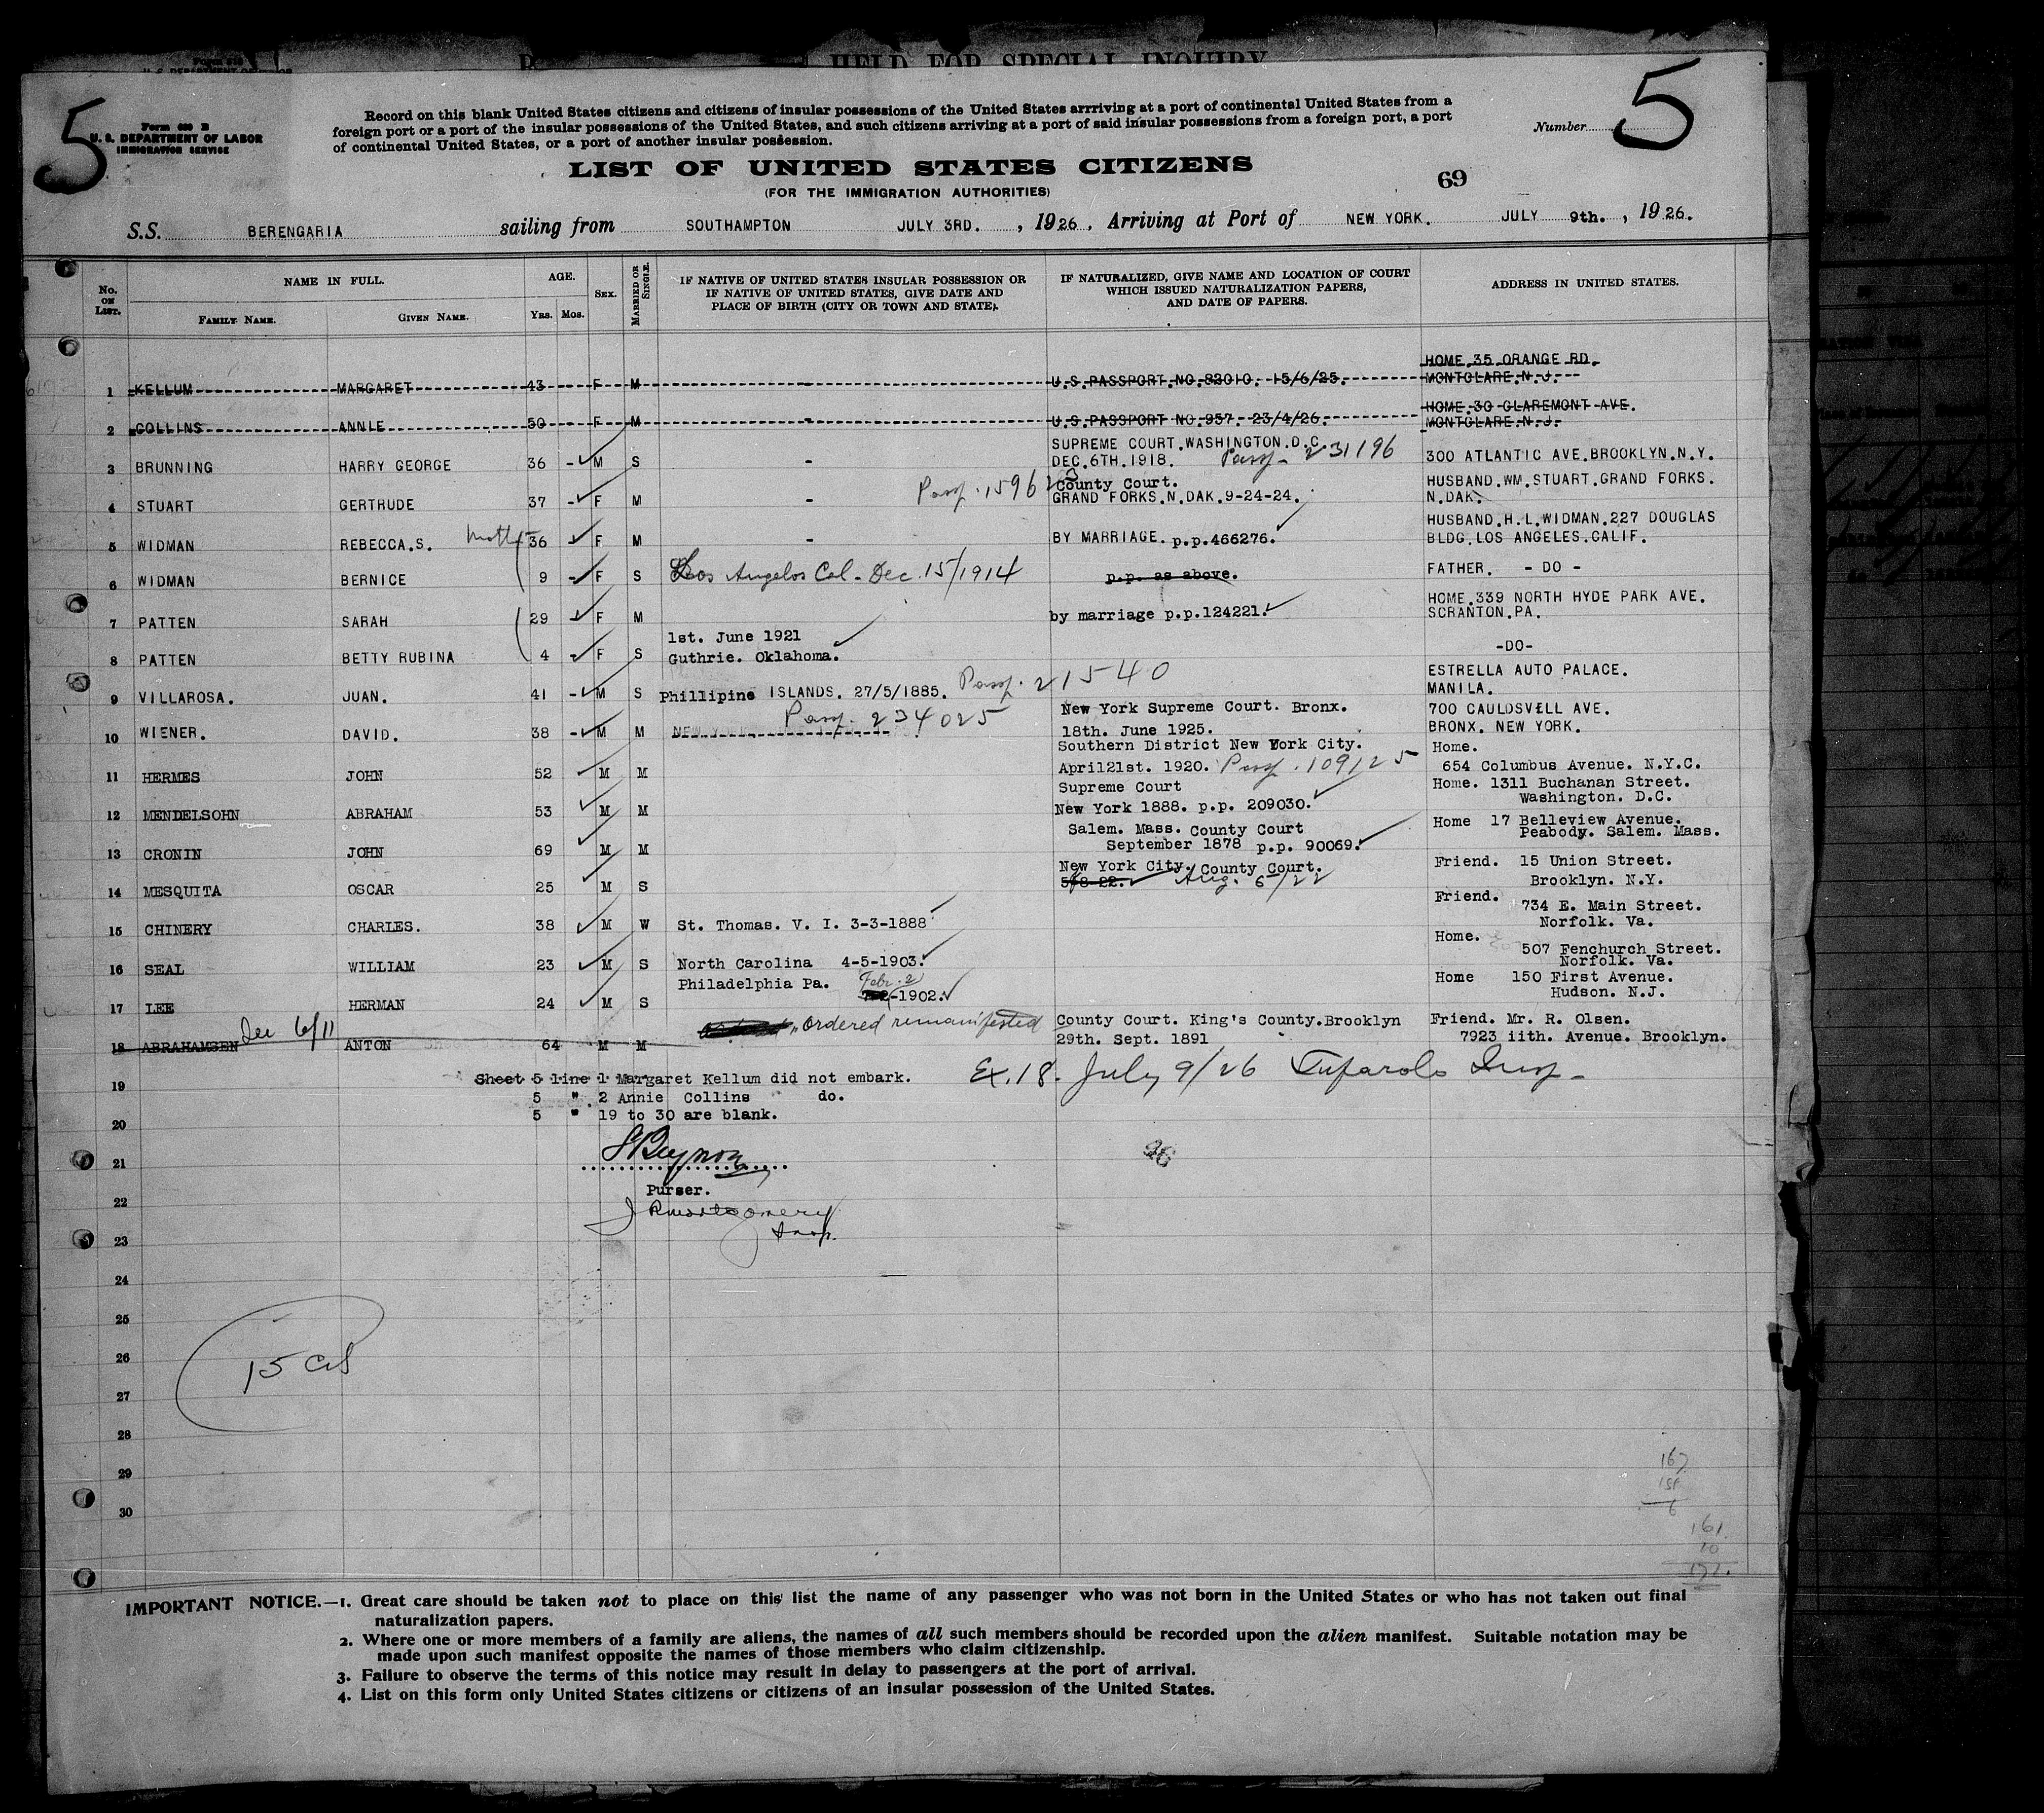 HELD FOR SPECIAL INQUIRY
5
5
Form 630 B
U. S. DEPARTMENT OF LABOR
IMMIGRATION SERVICE
Record on this blank United States citizens and citizens of insular possessions of the United States arrriving at a port of continental United States from a
foreign port or a port of the insular possessions of the United States, and such citizens arriving at a port of said insular possessions from a foreign port, a port
of continental United States, or a port of another insular possession.
Number
LIST OF UNITED STATES CITIZENS
(FOR THE IMMIGRATION AUTHORITIES)
69
S.S. BERENGARIA sailing from SOUTHAMPTON JULY 3RD. , 1926 , Arriving at Port of NEW YORK. JULY 9th. , 1926.
No. ON LIST. NAME IN FULL. FAMILY NAME. GIVEN NAME. AGE. YRS. MOS. SEX. MARRIED OR SINGLE. IF NATIVE OF UNITED STATES INSULAR POSSESSION OR IF NATIVE OF UNITED STATES, GIVE DATE AND PLACE OF BIRTH (CITY OR TOWN AND STATE). IF NATURALIZED, GIVE NAME AND LOCATION OF COURT WHICH ISSUED NATURALIZATION PAPERS, AND DATE OF PAPERS. ADDRESS IN UNITED STATES.
HOME.35 ORANGE RD.
1 KELLUM MARGARET 43 F M - U.S.PASSPORT.NO.82010. 15/6/25. MONTCLARE.N.J.
HOME.30 CLAREMONT AVE.
2 COLLINS ANNIE 50 F M - U.S.PASSPORT NO.957. 23/4/26. MONTCLARE.N.J.
SUPREME COURT.WASHINGTON.D.C.
3 BRUNNING HARRY GEORGE 36 - M S - DEC.6TH.1918. Passp. 231196 300 ATLANTIC AVE.BROOKLYN.N.Y.
Passp. 159623 County Court. HUSBAND.WM.STUART.GRAND FORKS.
4 STUART GERTRUDE 37 - F M - GRAND FORKS.N.DAK.9-24-24. N.DAK.
HUSBAND.H.L.WIDMAN.227 DOUGLAS
5 WIDMAN REBECCA.S. 36 - F M - BY MARRIAGE. p.p.466276. BLDG.LOS ANGELES.CALIF.
6 WIDMAN BERNICE 9 - F S Los Angelos Cal - Dec. 15/1914 p.p. as above. FATHER. - DO -
HOME.339 NORTH HYDE PARK AVE.
7 PATTEN SARAH 29 - F M by marriage p.p.124221. SCRANTON.PA.
1st. June 1921
8 PATTEN BETTY RUBINA 4 - F S Guthrie. Oklahoma. -DO-
ESTRELLA AUTO PALACE.
9 VILLAROSA. JUAN. 41 - M S Phillipine ISLANDS. 27/5/1885. Passp. 21540 MANILA.
Passp. 234025 New York Supreme Court. Bronx. 700 CAULDSVELL AVE.
10 WIENER. DAVID. 38 - M M NEW 18th. June 1925. BRONX. NEW YORK.
Southern District New York City. Home.
11 HERMES JOHN 52 M M April21st. 1920. Passp. 109125 654 Columbus Avenue. N.Y.C.
Supreme Court Home. 1311 Buchanan Street.
12 MENDELSOHN ABRAHAM 53 M M New York 1888. p.p. 209030. Washington. D.C.
Salem. Mass. County Court Home 17 Belleview Avenue.
13 CRONIN JOHN 69 M M September 1878 p.p. 90069. Peabody. Salem. Mass.
New York City. County Court. Friend. 15 Union Street.
14 MESQUITA OSCAR 25 M S Aug. 6/22 Brooklyn. N.Y.
Friend. 734 E. Main Street.
15 CHINERY CHARLES. 38 M W St. Thomas. V. I. 3-3-1888 Norfolk. Va.
Home. 507 Fenchurch Street.
16 SEAL WILLIAM 23 M S North Carolina 4-5-1903. Norfolk. Va.
Philadelphia Pa. Febr. 2 Home 150 First Avenue.
17 LEE HERMAN 24 M S -1902. Hudson. N.J.
6/11 Ordered remanifested County Court. King's County.Brooklyn Friend. Mr. R. Olsen.
18 ABRAHAMSEN ANTON 64 M M 29th. Sept. 1891 7923 iith. Avenue. Brooklyn.
19 Sheet 5 line 1 Margaret Kellum did not embark. Ex. 18. July 9/26 Insp.
5 " 2 Annie Collins do.
5 " 19 to 30 are blank.
20
21
Purser.
22 Montgomery
Insp.
23
24
25
26
15
27
28
29
167
6
30
161
10
171.
IMPORTANT NOTICE.—1. Great care should be taken not to place on this list the name of any passenger who was not born in the United States or who has not taken out final
naturalization papers.
2. Where one or more members of a family are aliens, the names of all such members should be recorded upon the alien manifest. Suitable notation may be
made upon such manifest opposite the names of those members who claim citizenship.
3. Failure to observe the terms of this notice may result in delay to passengers at the port of arrival.
4. List on this form only United States citizens or citizens of an insular possession of the United States.